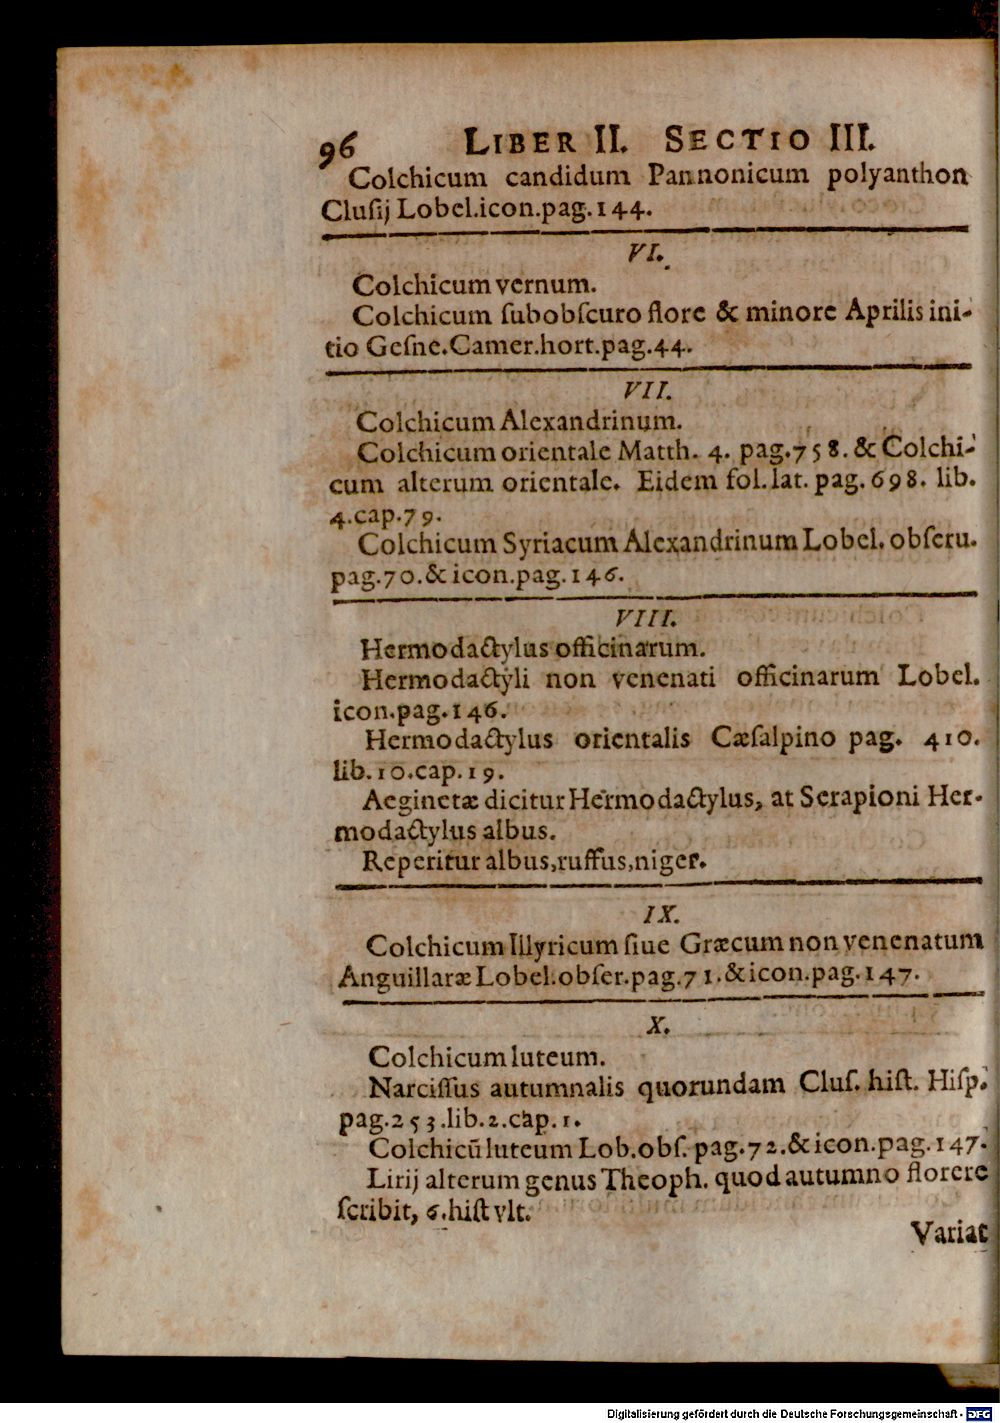 96 LIBER II. SECTIO III.
Colchicum candidum Pannonicum polyanthon
Cluſij Lobel.icon.pag.144.
VI.
Colchicum vernum.
Colchicum ſubobſcuro flore & minore Aprilis ini-
tio Geſne.Camer.hort.pag.44.
VII.
Colchicum Alexandrinum.
Colchicum orientale Matth. 4. pag.758.& Colchi-
cum alterum orientale. Eidem fol.lat. pag.698. lib.
4.cap.79.
Colchicum Syriacum Alexandrinum Lobel. obſeru.
pag.70.& icon.pag.146.
VIII.
Hermodactylus officinarum.
Hermodactyli non venenati officinarum Lobel.
icon.pag.146.
Hermodactylus orientalis Cæſalpino pag. 410.
lib.10.cap.19.
Aeginetæ dicitur Hermodactylus, at Serapioni Her-
modactylus albus.
Reperitur albus,ruffus,niger.
IX.
Colchicum Illyricum ſiue Græcum non venenatum
Anguillaræ Lobel.obſer.pag.71.& icon.pag.147.
X.
Colchicum luteum.
Narciſſus autumnalis quorundam Cluſ. hiſt. Hiſp.
pag.253.lib.2.cap.1.
Colchicū luteum Lob.obſ.pag.72.& icon.pag.147.
Lirij alterum genus Theoph. quod autumno florere
ſcribit, 6.hiſt vlt.
Variat
Digitalisierung gefördert durch die Deutsche Forschungsgemeinschaft - DFG